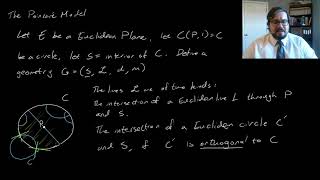 The Poincaré Model
Let E be a Euclidean Plane, let C(P,1)=C
be a circle, let S= interior of C. Define a
geometry G = (S, L, d, m)
C
The lines L are of two kinds:
the intersection of a Euclidean line L through P
and S.
P
The intersection of a Euclidean circle C'
and S, if C' is orthogonal to C